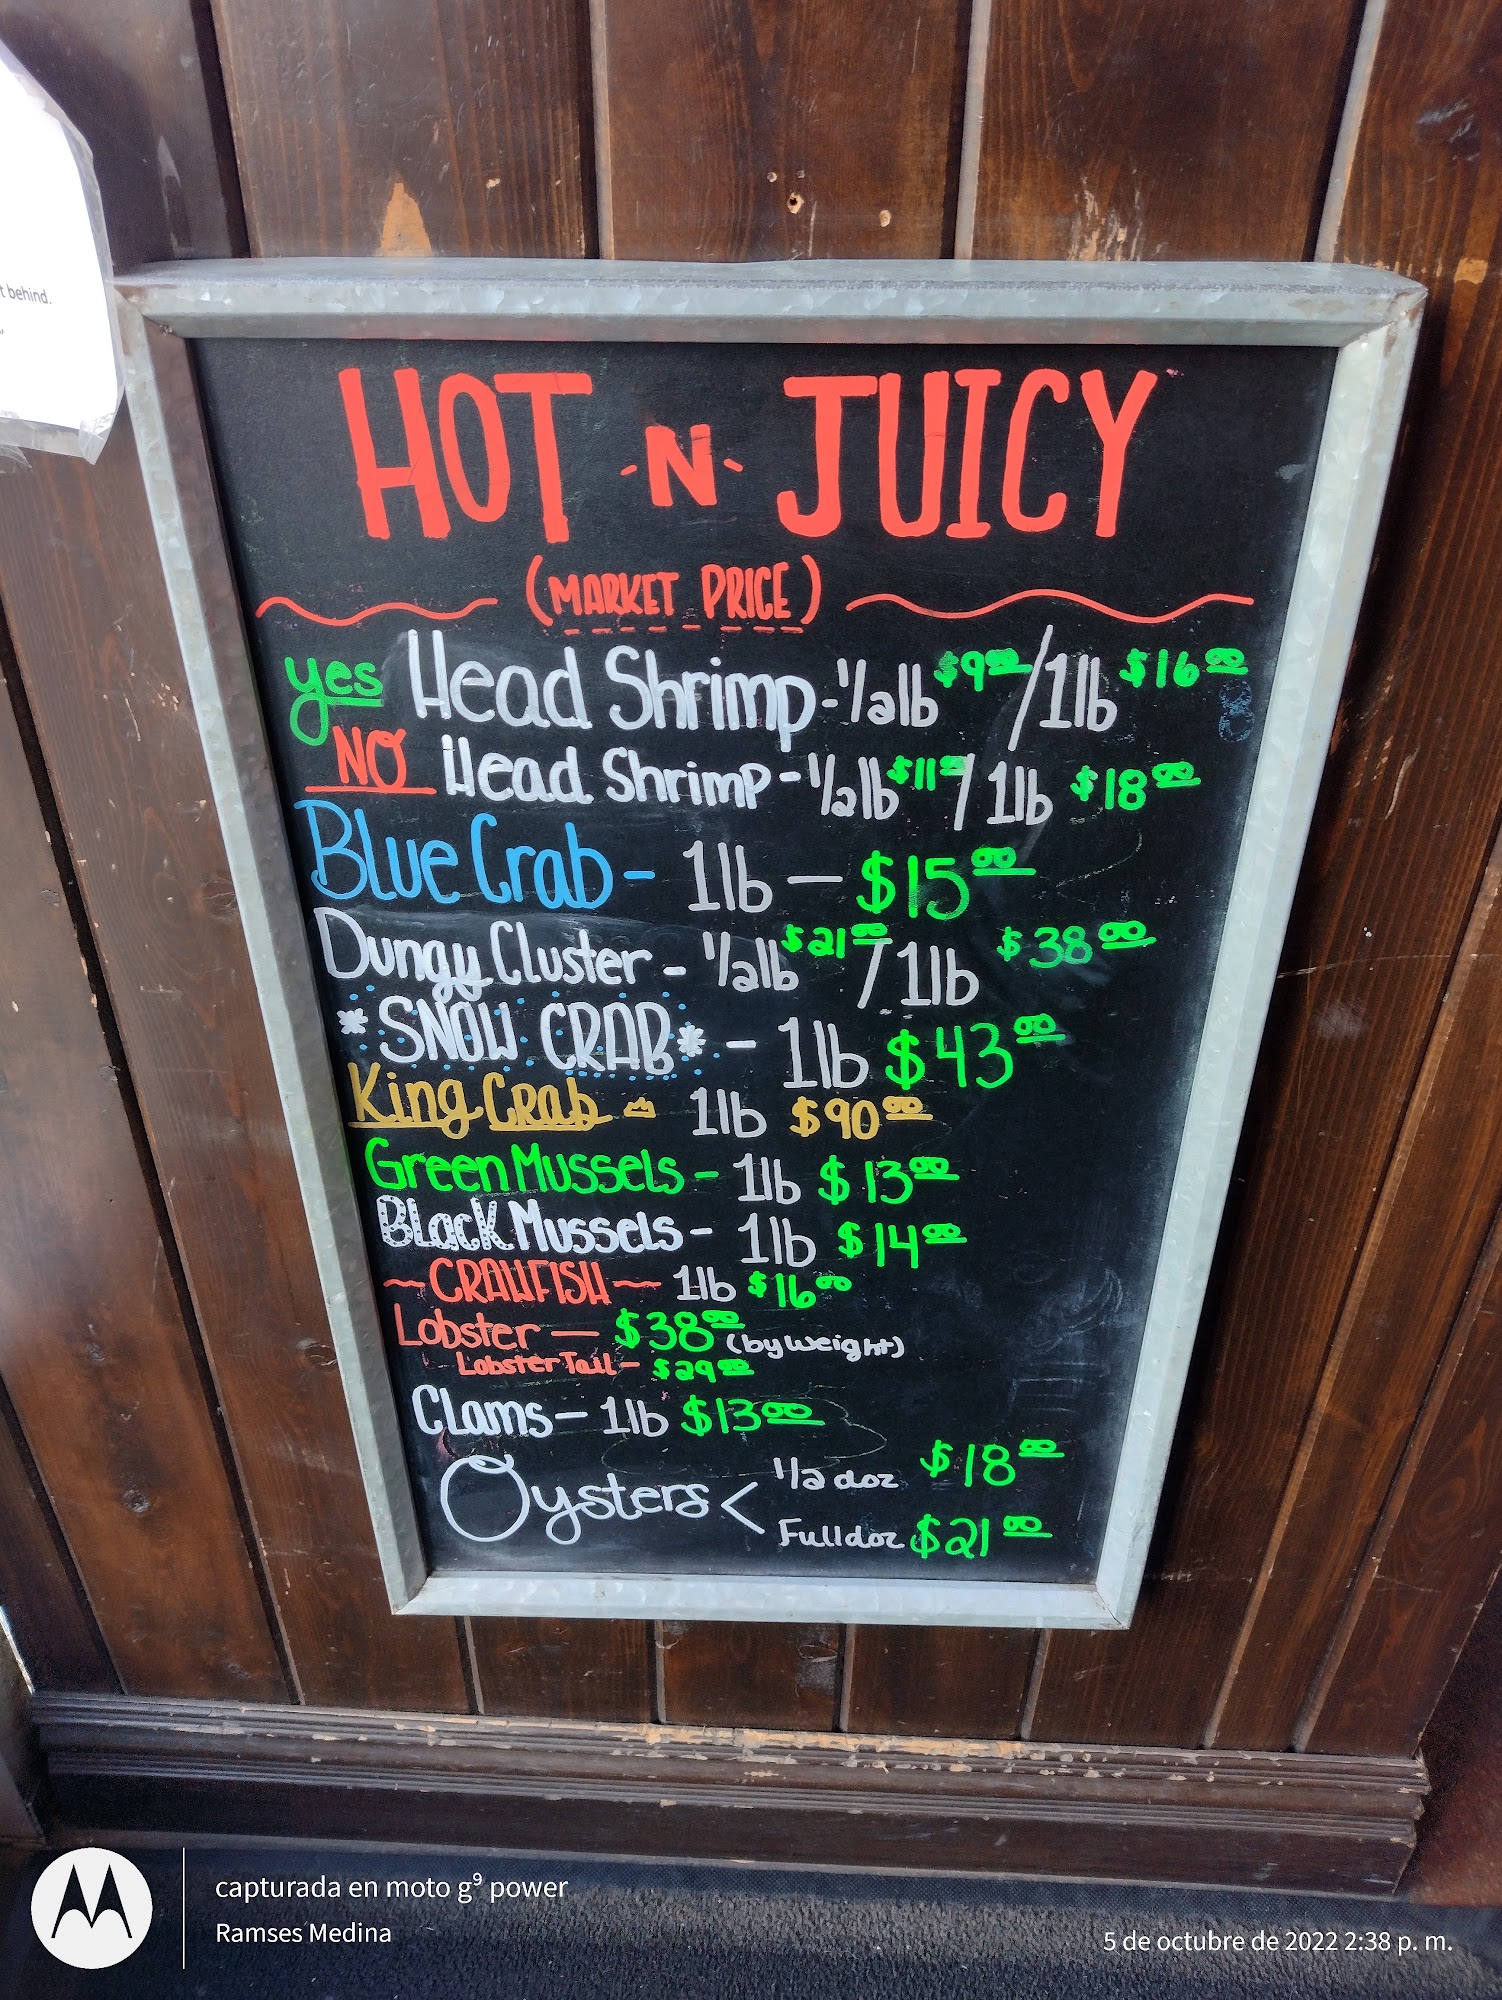 t behind.
HOT -N- JUICY
(MARKET PRICE)
yes Head Shrimp - 1/2lb $9.00 / 1lb $16.00
NO Head Shrimp - 1/2lb $11.00 / 1lb $18.00
Blue Crab - 1lb — $15.00
Dungy Cluster - 1/2lb $21.00 / 1lb $38.00
*SNOW CRAB* - 1lb $43.00
King Crab - 1lb $90.00
Green Mussels - 1lb $13.00
Black Mussels - 1lb $14.00
~CRAWFISH~ 1lb $16.00
Lobster — $38.00 (by weight)
Lobster Tail - $29.00
Clams - 1lb $13.00
Oysters < 1/2 doz $18.00
Full doz $21.00
capturada en moto g⁹ power
Ramses Medina
5 de octubre de 2022 2:38 p. m.